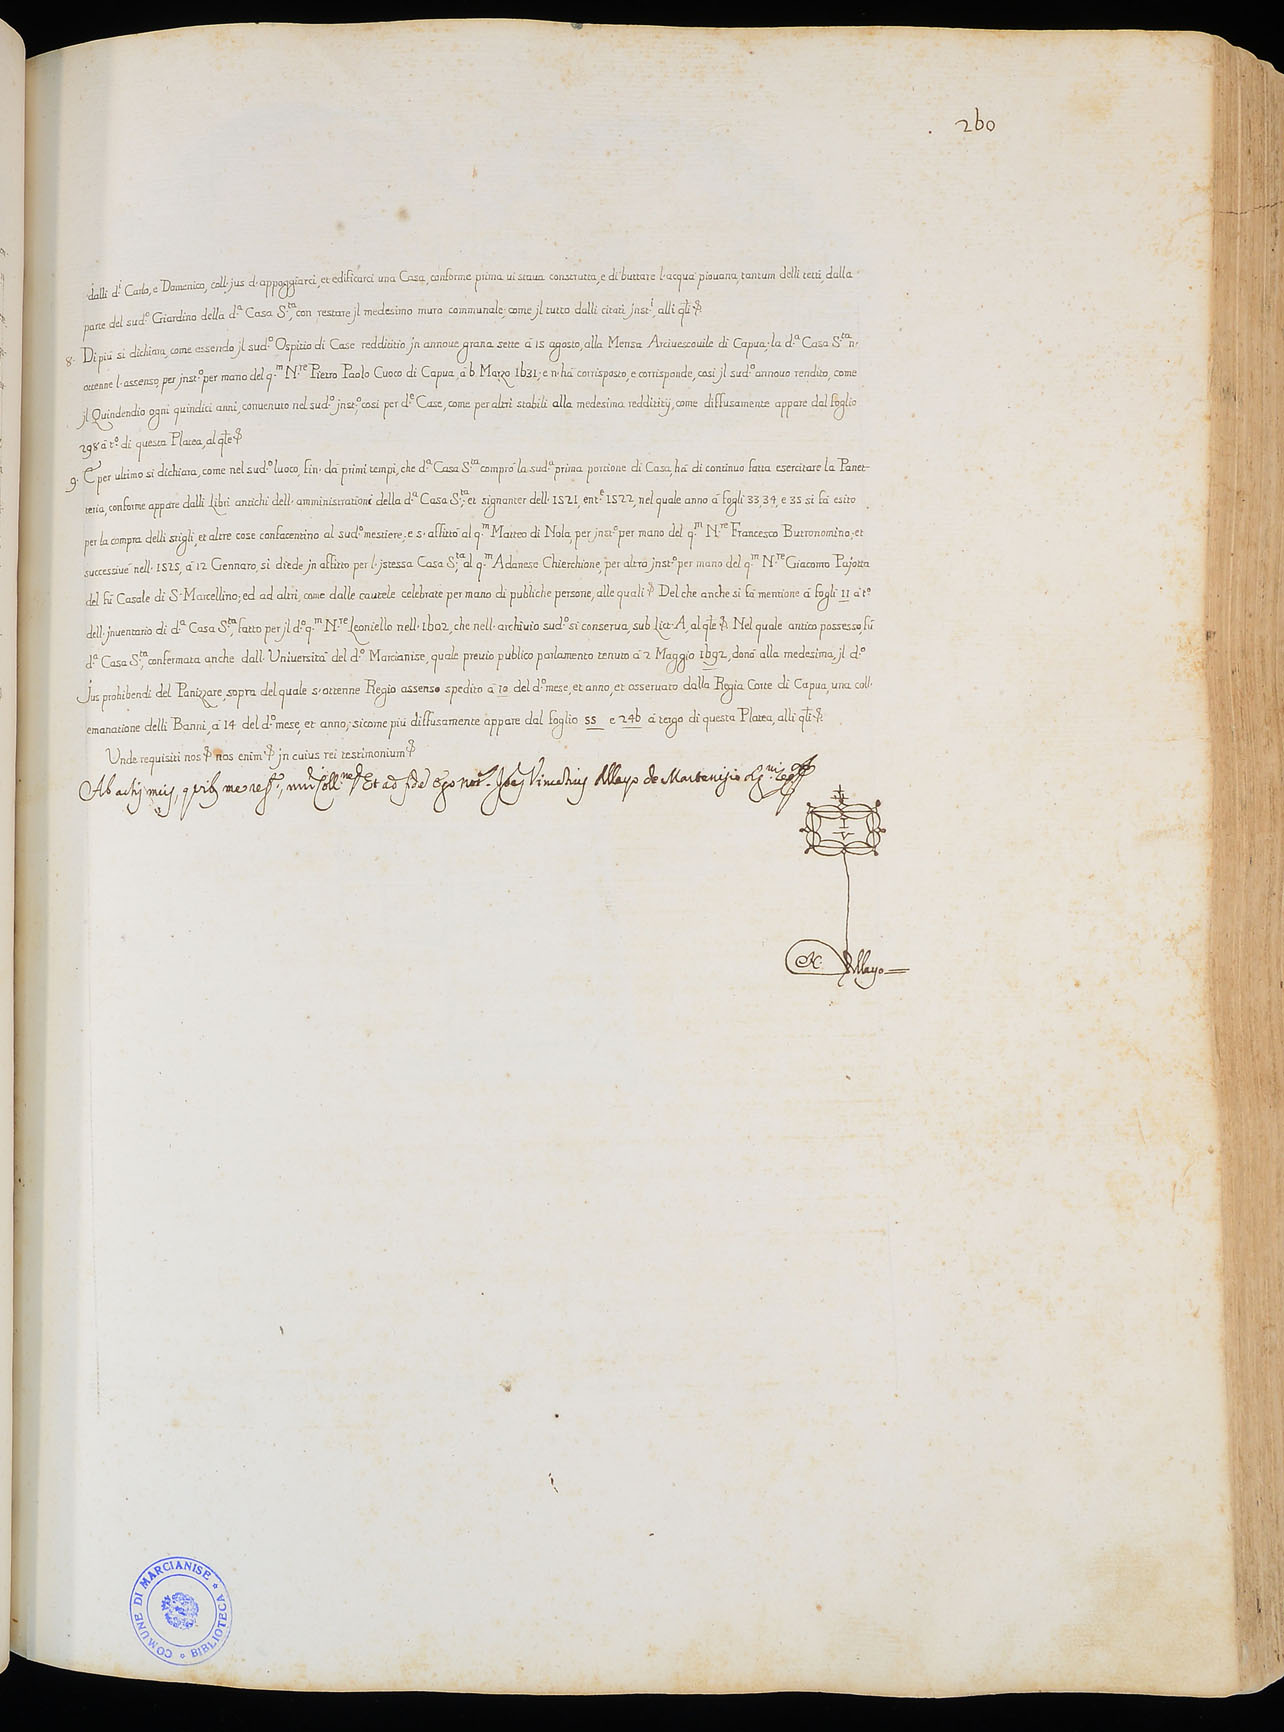 260
dalli d.ⁱ Carlo, e Domenico, coll· jus d· appoggiarci, et edificarci una Casa, conforme prima vi staua construtta, e di buttare l·acqua piouana, tantum delli tetti, dalla
parte del sud.º Giardino della d.ª Casa S.ᵗᵃ, con restare jl medesimo muro communale; come jl tutto dalli citati jnst.ⁱ, alli q̃li &
8· Di più si dichiara, come essendo jl sud.º Ospitio di Case reddititio jn annoue grana sette à 15 agosto, alla Mensa Arciuescouile di Capua; la d.ª Casa S.ᵗᵃ n·
ottenne l·assenso, per jnst.º per mano del q.ᵐ N.ʳᵉ Pietro Paolo Cuoco di Capua, à 6 Marzo 1631; e n·hà corrisposto, e corrisponde, così jl sud.º annouo rendito, come
jl Quindendio ogni quindici anni, conuenuto nel sud.º jnst.º così per d.ᵉ Case, come per altri stabili alla medesima reddititij, come diffusamente appare dal foglio
298 à t.º di questa Platea, al q̃le &
9· E per ultimo si dichiara, come nel sud.º luoco, fin· dà primi tempi, che d.ª Casa S.ᵗᵃ comprò la sud.ª prima portione di Casa, hà di continuo fatta esercitare la Panet-
teria, conforme appare dalli Libri antichi dell· amministrationi della d.ª Casa S.ᵗᵃ; et signanter dell· 1521, ent.ᵉ 1522, nel quale anno à fogli 33, 34, e 35 si fà esito
per la compra delli stigli, et altre cose confacentino al sud.º mestiere; e s· affittò al q.ᵐ Matteo di Nola, per jnst.º per mano del q.ᵐ N.ʳᵉ Francesco Butronomino; et
successiuè nell· 1525, à 12 Gennaro, si diede jn affitto per l· jstessa Casa S.ᵗᵃ al q.ᵐ Adanese Chierchione, per altro jnst.º per mano del q.ᵐ N.ʳᵉ Giacomo Pajotta
del fù Casale di S· Marcellino; ed ad altri, come dalle cautele celebrate per mano di publiche persone, alle quali & Del che anche si fà mentione à fogli 11 à t.º
dell· jnuentario di d.ª Casa S.ᵗᵃ, fatto per jl d.º q.ᵐ N.ʳᵉ Leoniello nell· 1602, che nell· archiuio sud.º si conserua, sub Litt· A, al q̃le & Nel quale antico possesso, fù
d.ª Casa S.ᵗᵃ confermata anche dall· Università del d.º Marcianise, quale preuio publico parlamento tenuto à 2 Maggio 1692, donà alla medesima, jl d.º
Jus prohibendi del Panizzare, sopra del quale s·ottenne Regio assenso spedito à 10 del d.º mese, et anno, et osseruato dalla Regia Corte di Capua, una coll·
emanatione delli Banni, à 14 del d.º mese, et anno; sicome più diffusamente appare dal foglio 55 e 246 à tergo di questa Platea, alli q̃li &
Unde requisiti nos & nos enim & jn cuius rei testimonium &
Ab actis meis, quib; me ref.º, Et ad fidẽ Ego not.
I V
Allayo
COMUNE DI MARCIANISE * BIBLIOTECA *